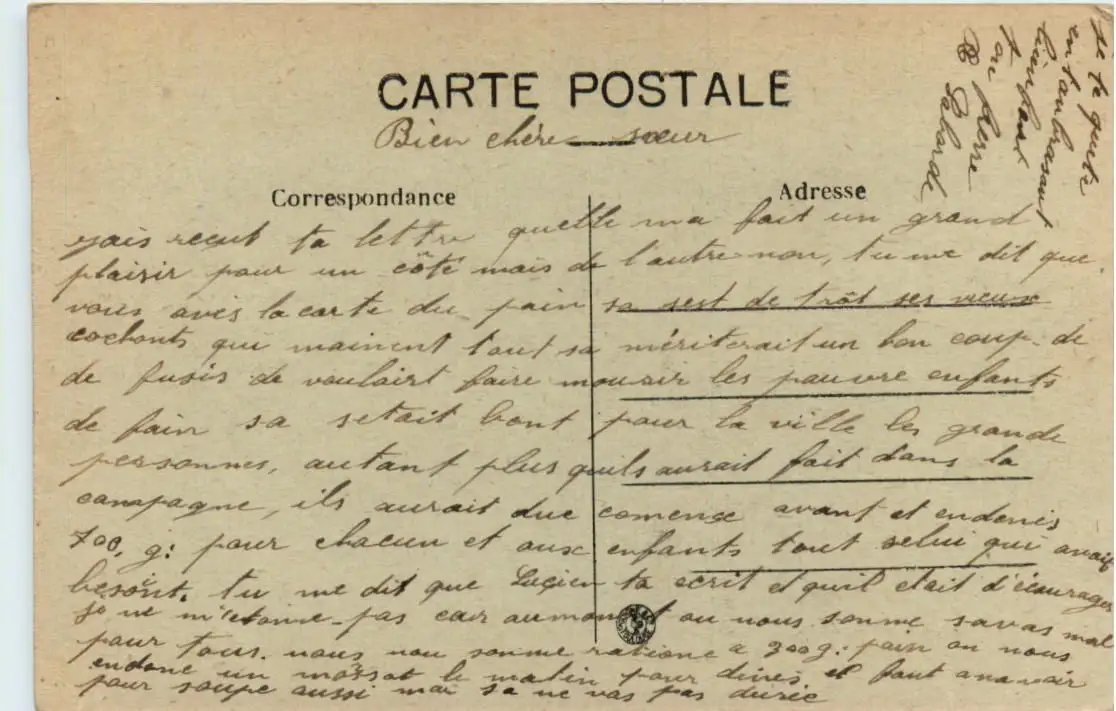 CARTE POSTALE
Bien chère sœur
Correspondance
Adresse
yais reçut ta lettre quelle ma fait un grand
plaisir pour un côté mais de l'autre non, tu me dit que
vous avès la carte du pain sa sest de trôt ses vieux
cochonts qui mainent tout sa mériterait un bon coup de
de fusis de voulairt faire mourir les pauvre enfants
de fain sa setait bont pour la ville les grande
personnes, autant plus quils aurait fait dans la
campagne, ils aurait due comense avant et endenis
700, g: pour chacun et aux enfants tout selui qui avait
besoint. tu me dit que Lucien ta ecrit et quil etait d'écourager
je ne m'etonne pas car aumoment ou nous somme sa vas mal
pour tous. nous nou somme ratione a 300g: pain on nous
endone un morsot le matin pour diner et faut anavoir
pour soupe aussi mai sa ne vas pas durée
je te quite
en tanbrassant
bien fort
ton frère
Labarde